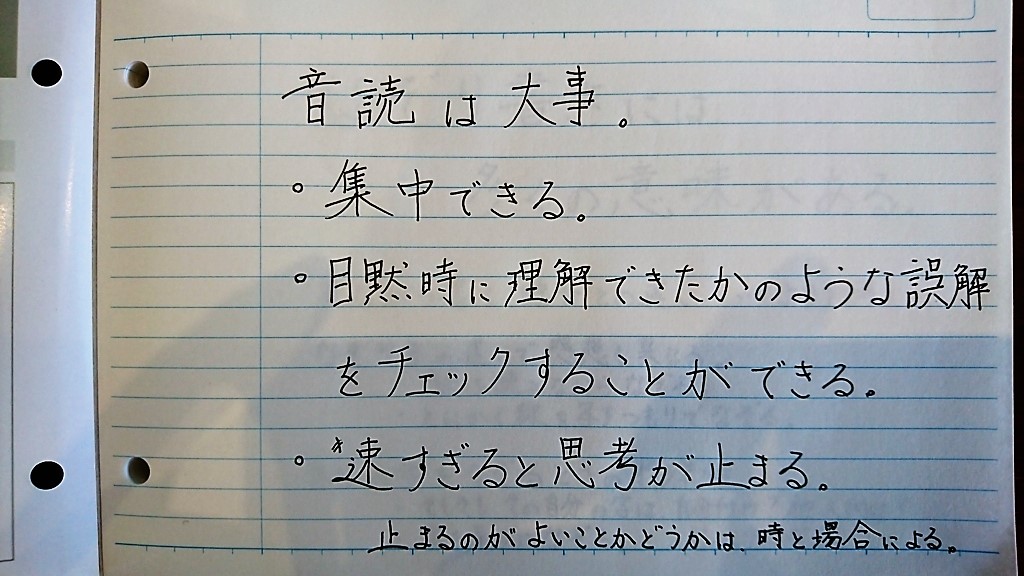 音読は大事。
。集中できる。
。目黙時に理解できたかのような誤解
をチェックすることができる。
。*速すぎると思考が止まる。
止まるのがよいことかどうかは、時と場合による。